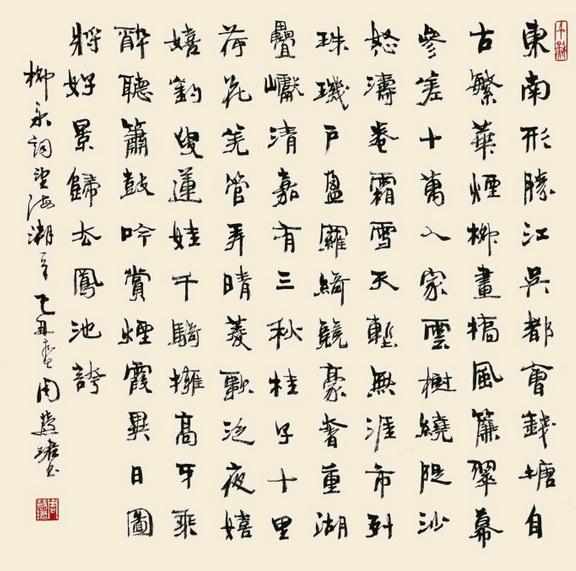 東南形勝江吳都會錢塘自
古繁華煙柳畫橋風簾翠幕
參差十萬人家雲樹繞隄沙
怒濤卷霜雪天塹無涯市列
珠璣戶盈羅綺競豪奢重湖
疊巘清嘉有三秋桂子十里
荷花羌管弄晴菱歌泛夜嬉
嬉釣叟蓮娃千騎擁高牙乘
醉聽簫鼓吟賞煙霞異日圖
將好景歸去鳳池誇
柳永詞望海潮 丑 周慧珺書